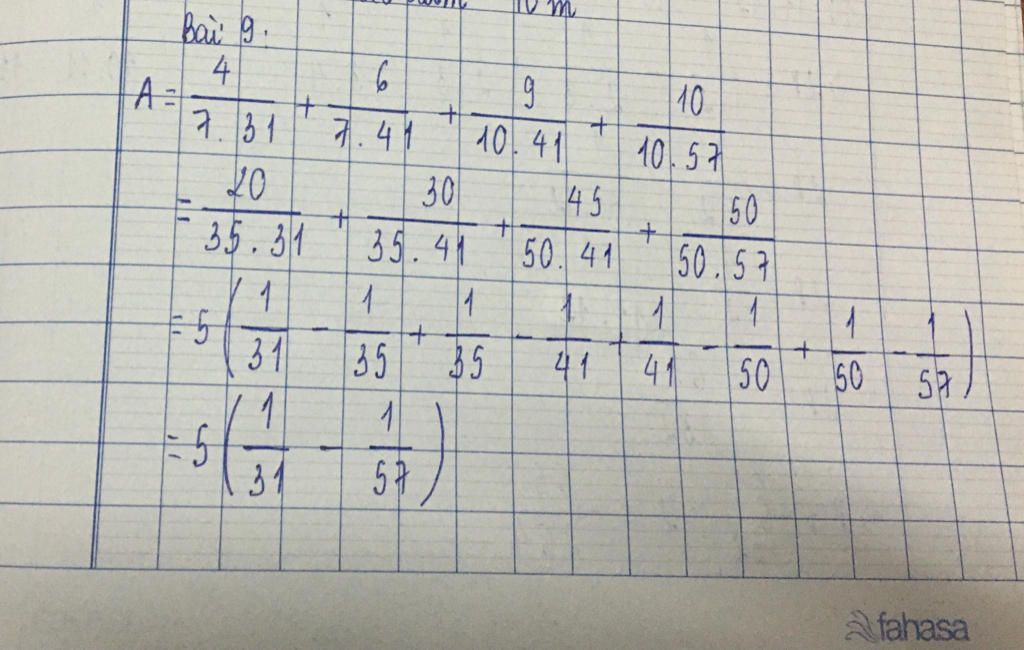 10 m
Bài 9:
A = 4/(7.31) + 6/(7.41) + 9/(10.41) + 10/(10.57)
= 20/(35.31) + 30/(35.41) + 45/(50.41) + 50/(50.57)
= 5 (1/31 - 1/35 + 1/35 - 1/41 + 1/41 - 1/50 + 1/50 - 1/57)
= 5 (1/31 - 1/57)
fahasa